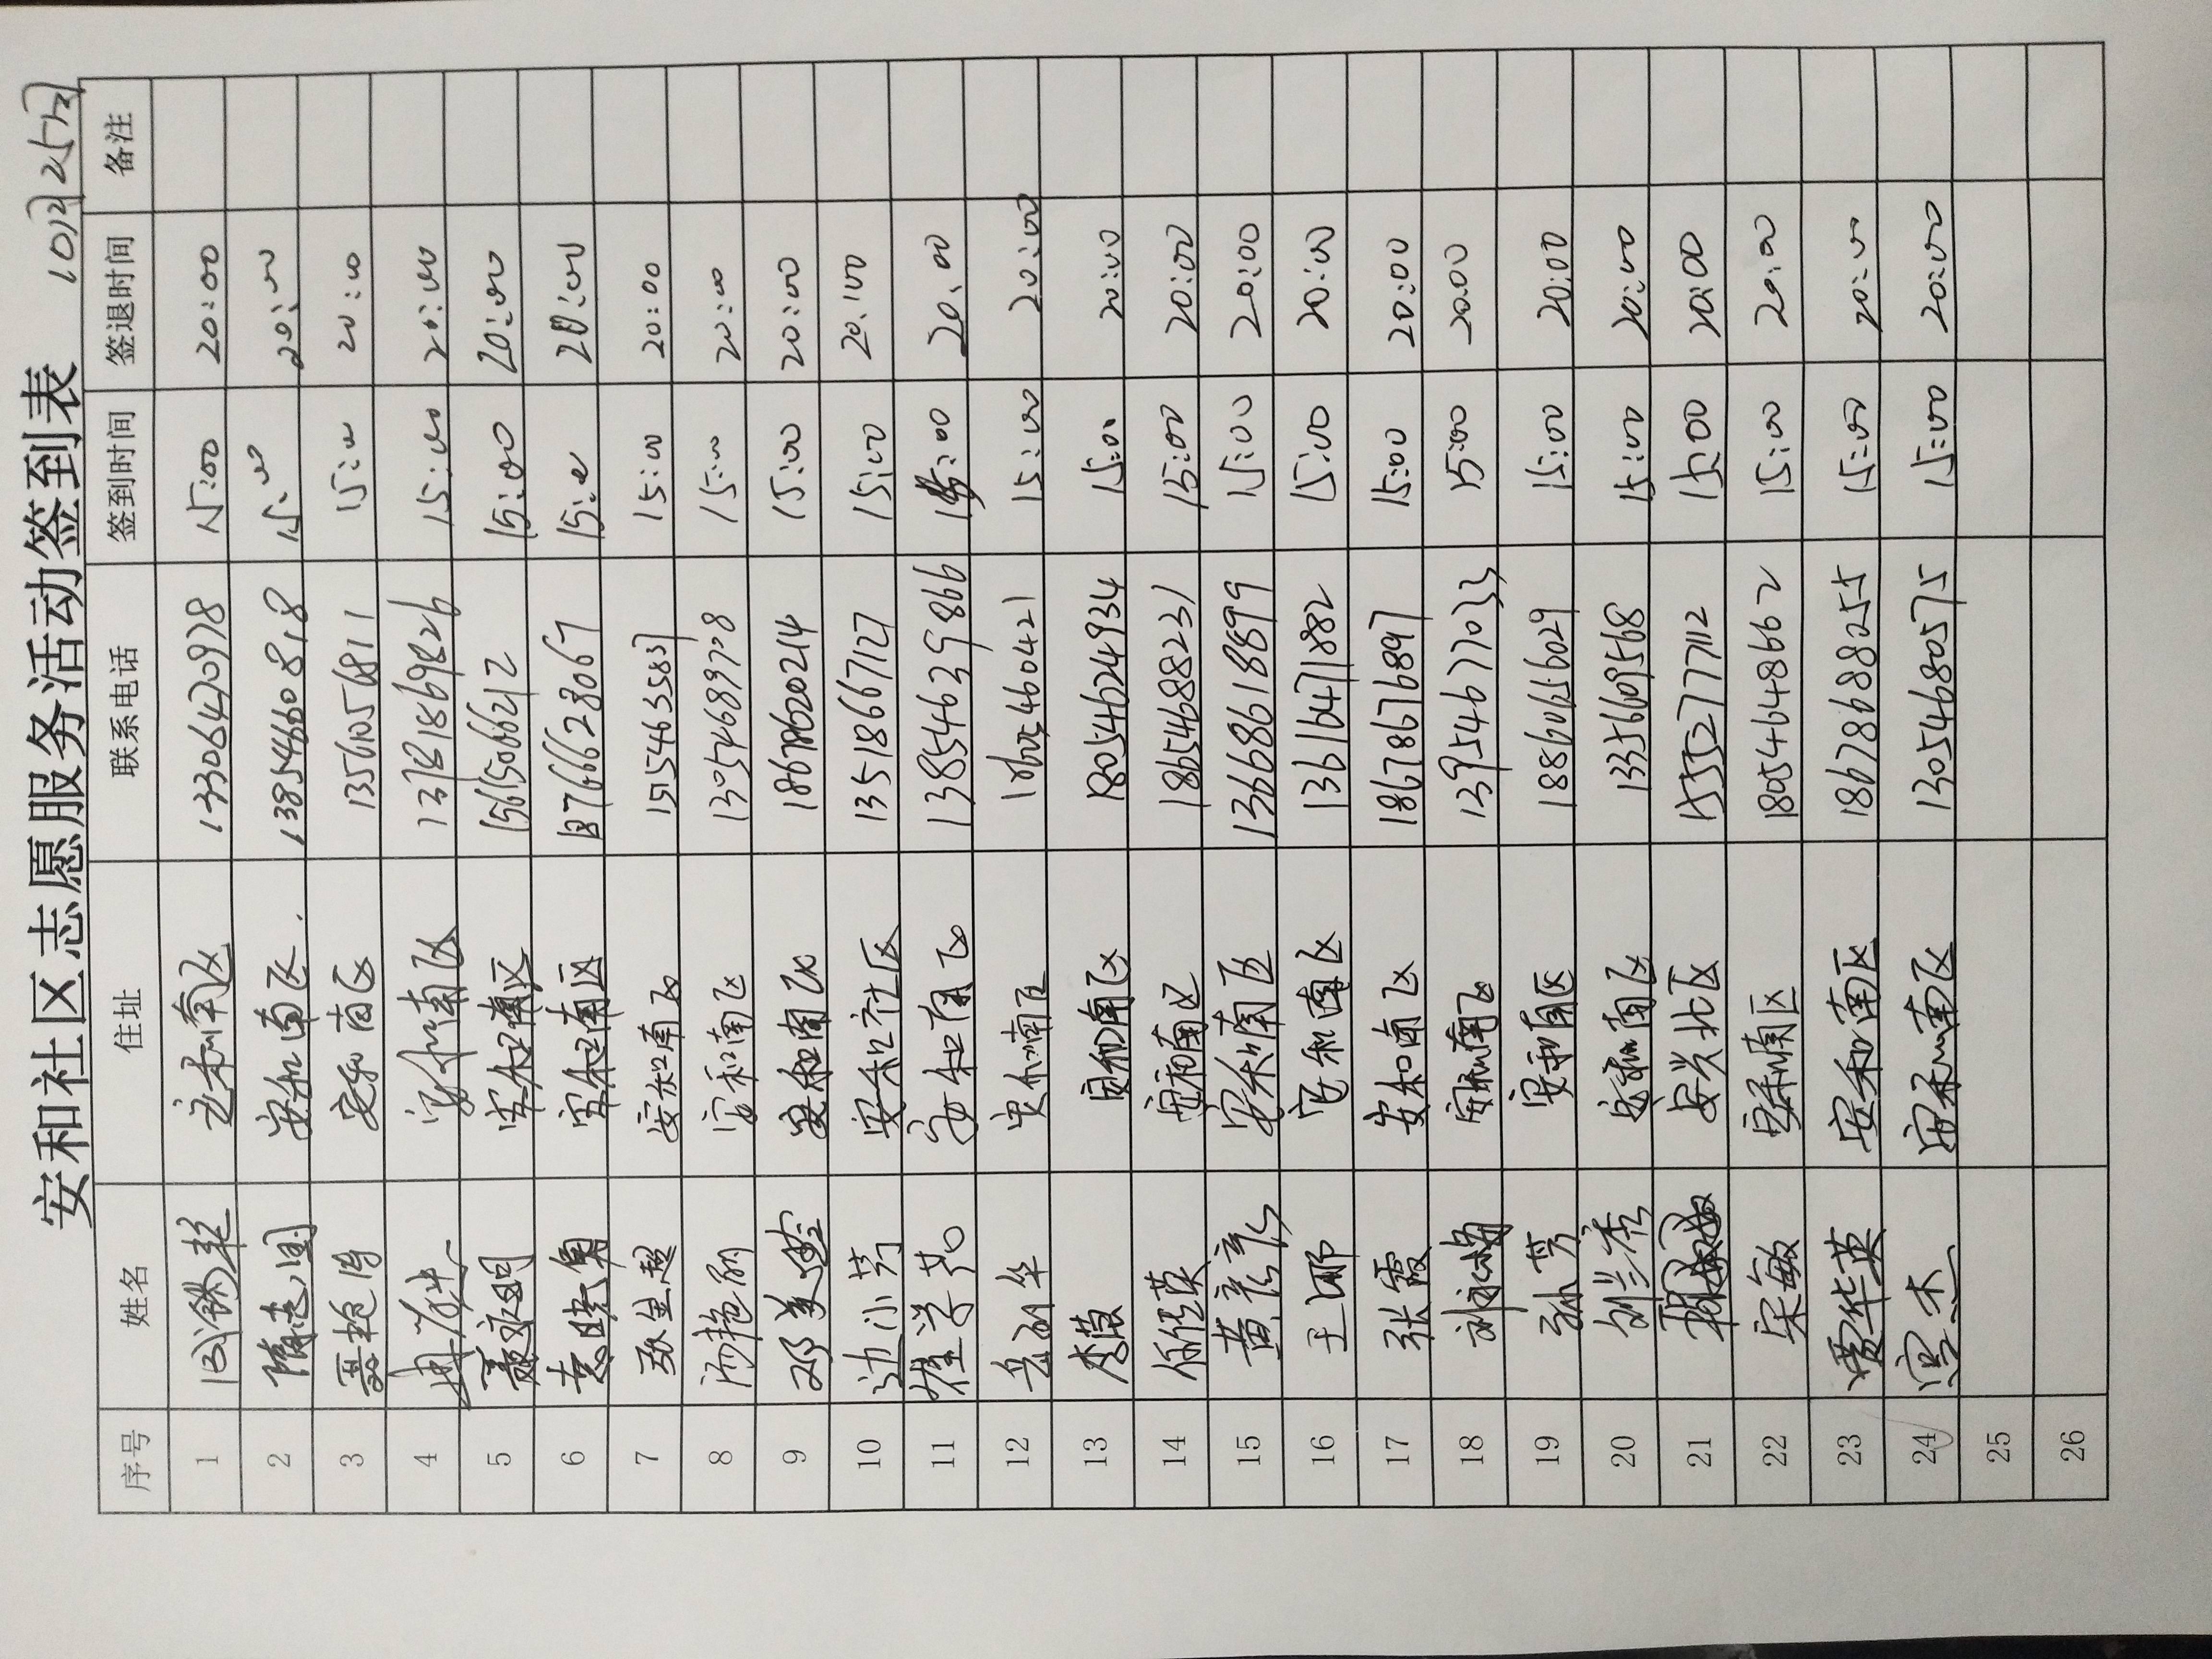 安和社区志愿服务活动签到表 10月25日
序号 姓名 住址 联系电话 签到时间 签退时间 备注
1 安和南区 13306420978 15:00 20:00
2 隋志国 安和南区. 13854660818 15:00 20:00
3 安和南区 13561056811 15:00 20:00
4 安和南区 15:00 20:00
5 安和南区 15615066212 15:00 20:00
6 袁晓勇 安和南区 18766623067 15:00 20:00
7 张金超 安和南区 15:00 20:00
8 汤艳丽 安和南区 15:00 20:00
9 邓美 安和南区 18678620214 15:00 20:00
10 边小芳 安和社区 13518667127 15:00 20:00
11 崔学芹 安和南区 13854639866 15:00 20:00
12 安和南区 15:00 20:00
13 李薇 安和南区 18054624934 15:00 20:00
14 任经英 安和南区 18654688231 15:00 20:00
15 黄彦彦 安和南区 13668618899 15:00 20:00
16 王娜 安和南区 13616471882 15:00 20:00
17 张霞 安和南区 18678676897 15:00 20:00
18 安和南区 13954677033 15:00 20:00
19 孙芳 安和南区 18860656029 15:00 20:00
20 刘兰秀 安和南区 13356609568 15:00 20:00
21 安兴北区 15552777112 15:00 20:00
22 宋敏 安和南区 18054648662 15:00 20:00
23 贾华英 安和南区 18678688255 15:00 20:00
24 安和南区 13054680575 15:00 20:00
25
26